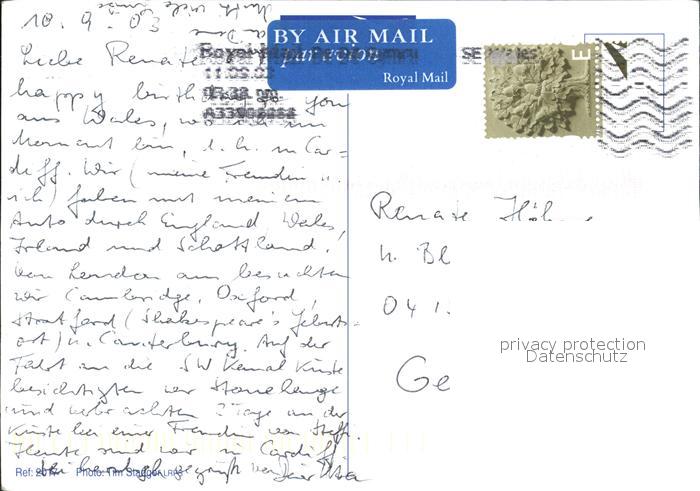 10.9.03
Liebe Renate
happy birthday to you
aus Wales, wo ich im
Moment bin, d.h. in Car=
diff. Wir (meine Freundin u.
ich) fahren mit meinem
Auto durch England, Wales,
Irland und Schottland.
Von London aus besuchten
wir Cambridge, Oxford,
Stratford (Shakespeare's Geburts=
ort) u. Canterbury. Auf der
Fahrt an die SW Kanal Küste
besichtigten wir Stonehenge
und verbrachten 2 Tage an der
Küste bei einer Freundin von Steffi.
Heute sind wir in Cardiff.
Sei herzlich gegrüßt von Deiner
BY AIR MAIL
par avion
Royal Mail
Royal Mail
SE Wales
11.09.03
A33902252
E
Renate Höh
n. Bl
04 1
Ge
privacy protection
Datenschutz
Ref: 201 Photo: Tim Stagg ALRPS